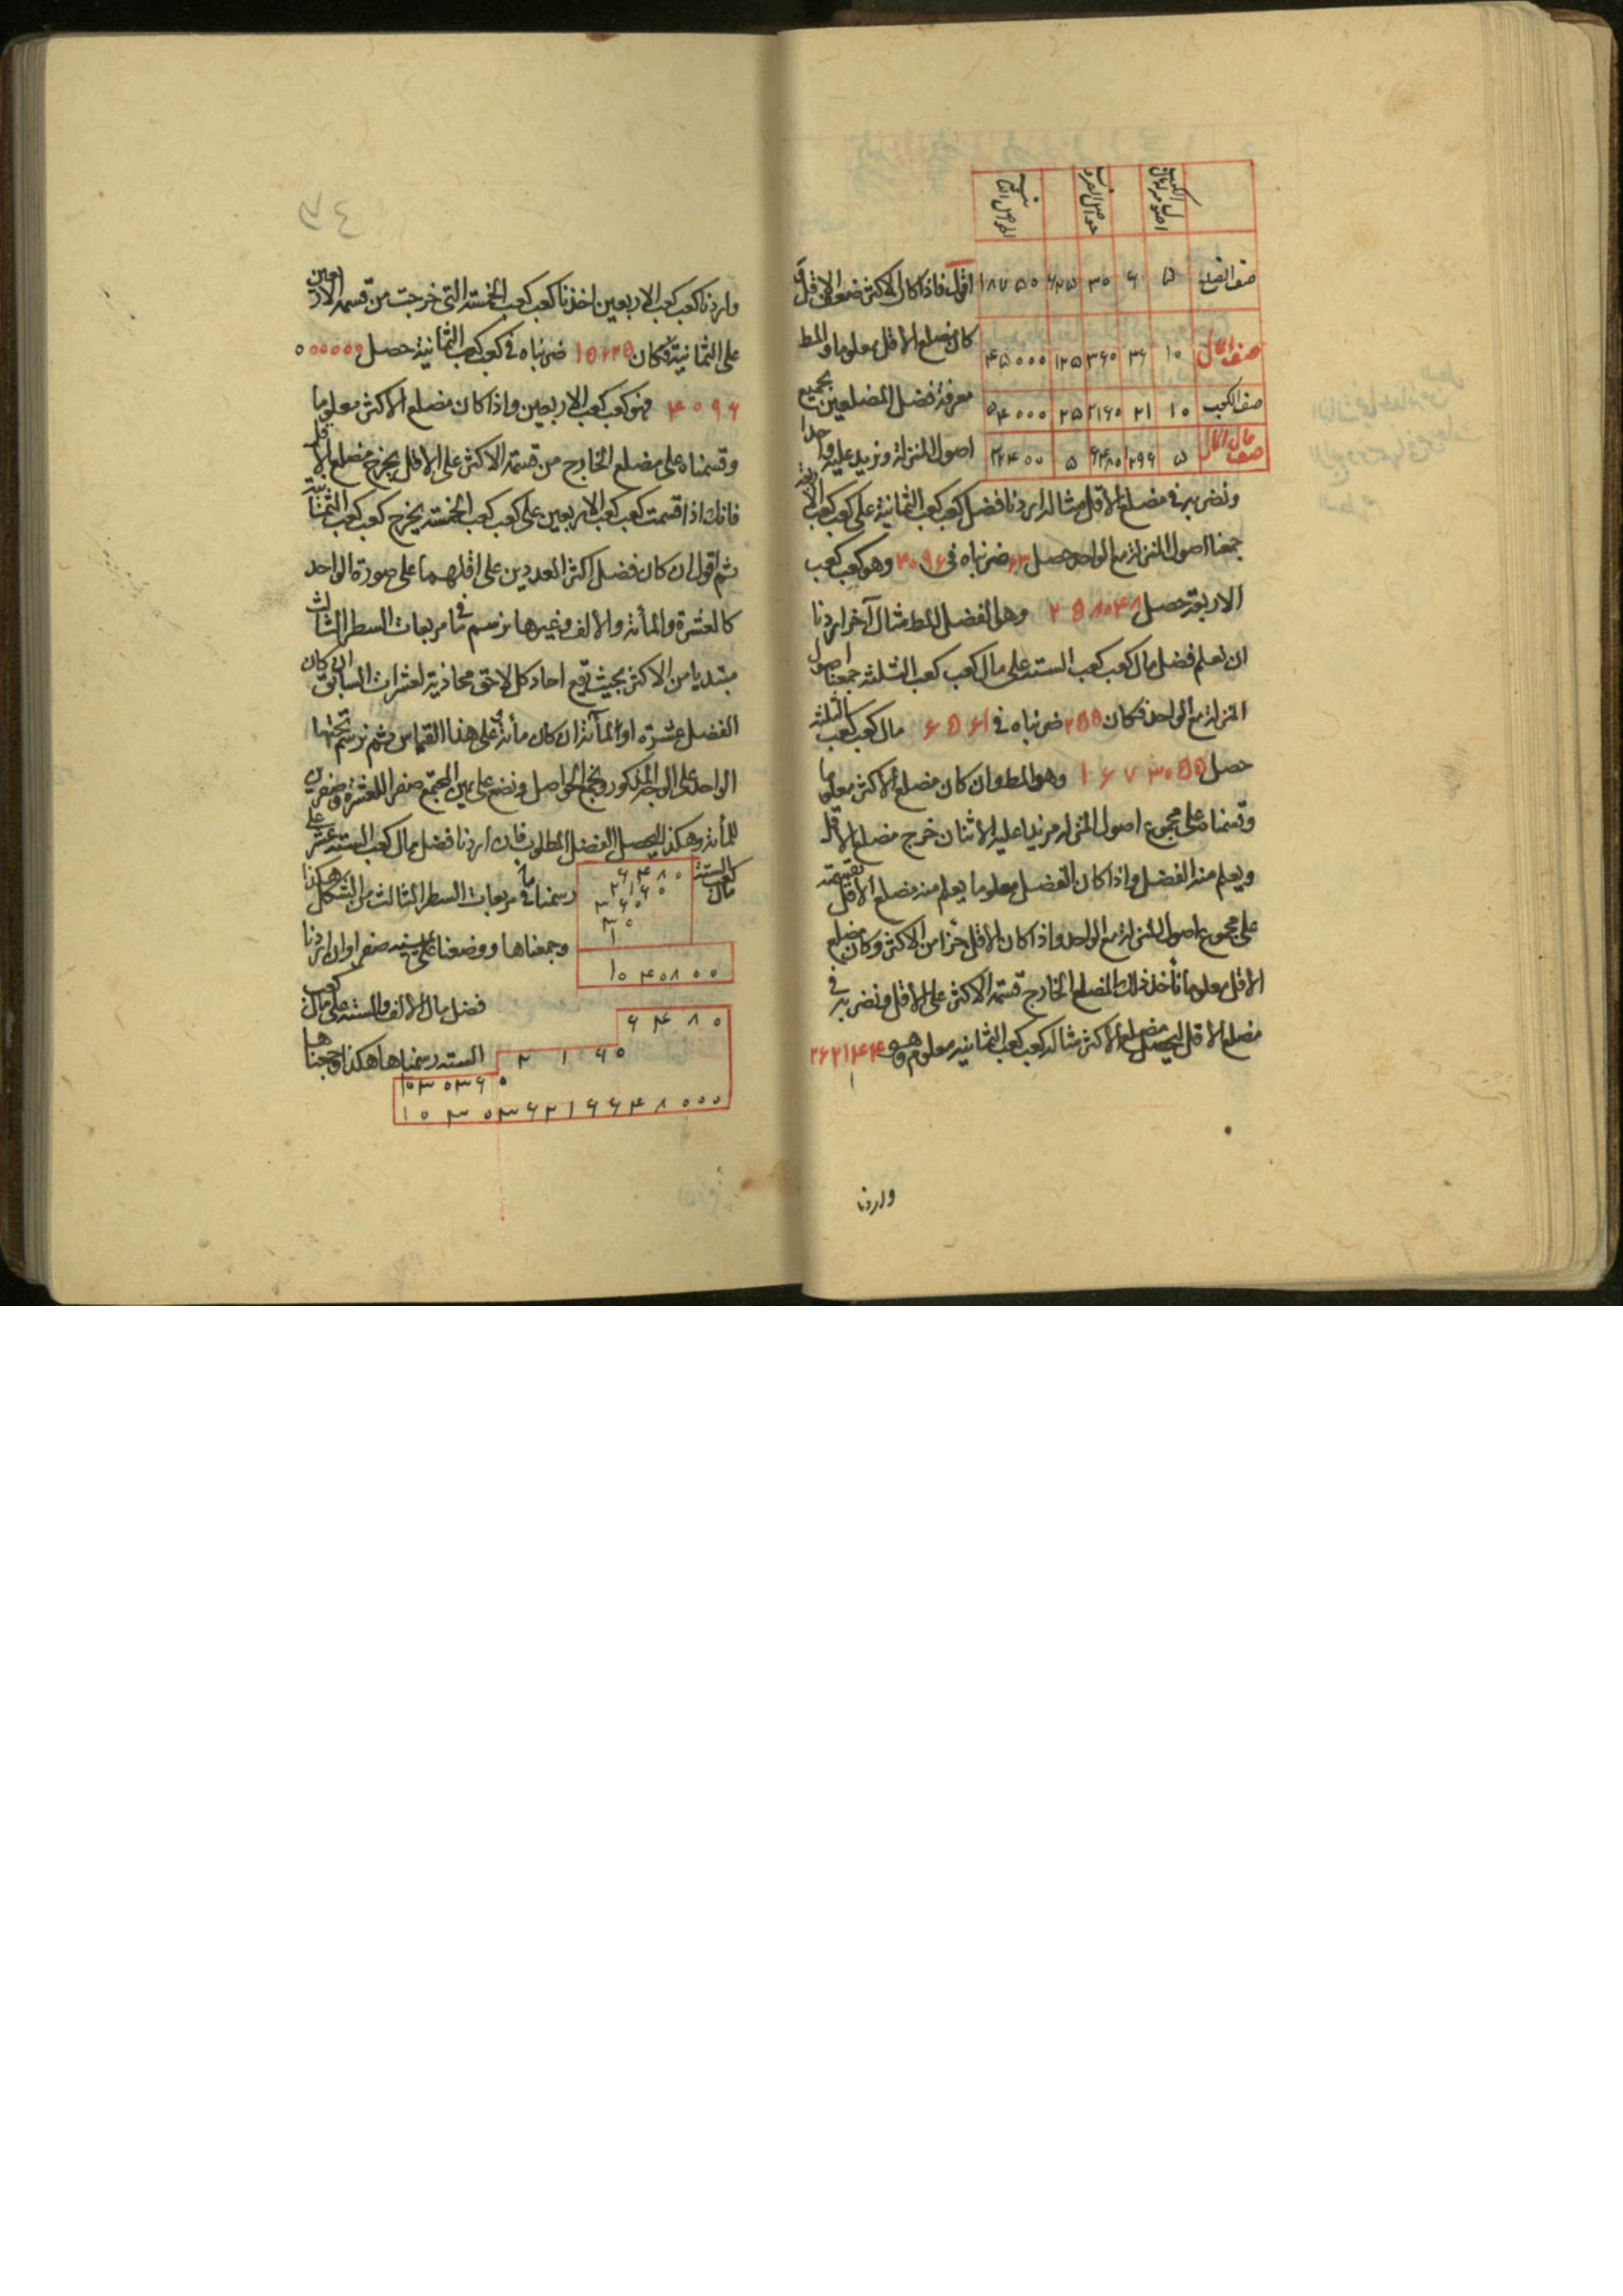 صف الضلع ۵ ۶ ۳۰ ۶۲۵ ۱۸۷۵۰
صف المال ۱۰ ۳۶ ۳۶۰ ۱۲۵ ۴۵۰۰۰
صف الكعب ۱۰ ۲۱۶۰ ۲۵ ۵۴۰۰۰
صف مال المال ۵ ۱۲۹۶ ۶۴۸۰ ۵ ۳۲۴۰۰
اقول فاذا كان الاكثر ضعف الاقل
كان مضلع الاقل معلوما والمط
معرفة فضل المضلعين بجميع
اصول المنزلة ونزيد عليه واحدا
ونضربه في مضلع الاقل مثاله اردنا فضل كعب كعب الثمانية على كعب كعب الاربعة
جمعنا اصول المنزلة مع الواحد حصل ۶۳ ضربناه في ۴۰۹۶ وهو كعب كعب
الاربعة حصل ۲۵۸۰۴۸ وهو الفضل المط مثال آخر اردنا
ان نعلم فضل مال كعب كعب الستة على مال كعب كعب الثلثة جمعنا اصول
المنزلة مع الواحد فكان ۲۵۵ ضربناه في ۶۵۶۱ مال كعب كعب الثلثة
حصل ۱۶۷۳۰۵۵ وهو المط وان كان مضلع الاكثر معلوما
وقسمناه على مجموع اصول المنزلة مزيدا عليه الاثنان خرج مضلع الاقل
ويعلم منه الفضل واذا كان الفضل معلوما يعلم منه مضلع الاقل بقسمته
على مجموع اصول المنزلة مع الواحد واذا كان الاقل جزأ من الاكثر وكان مضلع
الاقل معلوما نأخذ ذلك المضلع الخارج قسمة الاكثر على الاقل ونضربه في
مضلع الاقل ليحصل مضلع الاكثر مثاله كعب كعب الثمانية معلوم وهو ۲۶۲۱۴۴
واردنا
واردنا كعب كعب الاربعين اخذنا كعب كعب الخمسة التى خرجت من قسمة الاربعين
على الثمانية فكان ۱۵۶۲۵ ضربناه في كعب كعب الثمانية حصل ۰۰۰۰۰۰
۴۰۹۶ فهو كعب كعب الاربعين واذا كان مضلع الاكثر معلوما
وقسمناه على مضلع الخارج من قسمة الاكثر على الاقل يخرج مضلع الاقل
فانك اذا قسمت كعب كعب الاربعين على كعب كعب الخمسة يخرج كعب كعب الثمانية
ثم اقول ان كان فضل اكثر العددين على اقلهما على صورة الواحد
كالعشرة والمأة والالف وغيرها نرسم ما في مربعات السطر الثالث
مبتديا من الاكثر بحيث يقع احاد كل لاحق محاذية لعشرات السابق ان كان
الفضل عشرة او المأة ان كان مأة وعلى هذا القياس ثم نرسم تحتها
الواحد على الوجه المذكور ونجمع الحواصل ونضع على يمين المجتمع صفرا للعشرة وصفرين
للمأة وهكذا ليحصل الفضل المطلوب فان اردنا فضل مال كعب الستة عشر على
مال كعب الستة رسمنا ما في مربعات السطر الثالث من الشكل هكذا
۶۴۸۰
۲۱۶۰
۳۶۰
۳۰
۱
وجمعناها ووضعنا على يمينه صفرا وان اردنا
۱۰۴۰۸۰۰
فضل مال الالف والستة على مال كعب
الستة رسمناها هكذا وجمعناها
۶۴۸۰
۲۱۶۰
۱۰۳۰۳۶۰
۱۰۳۰۳۶۲۱۶۶۴۸۰۰۰